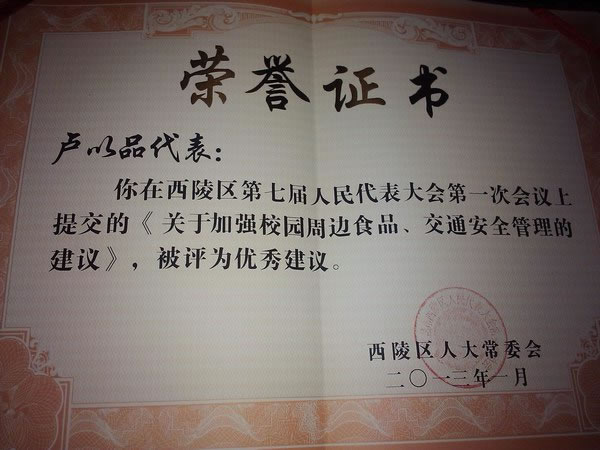 荣誉证书
卢以品代表：
你在西陵区第七届人民代表大会第一次会议上
提交的《关于加强校园周边食品、交通安全管理的
建议》，被评为优秀建议。
西陵区人大常委会
二〇一三年一月